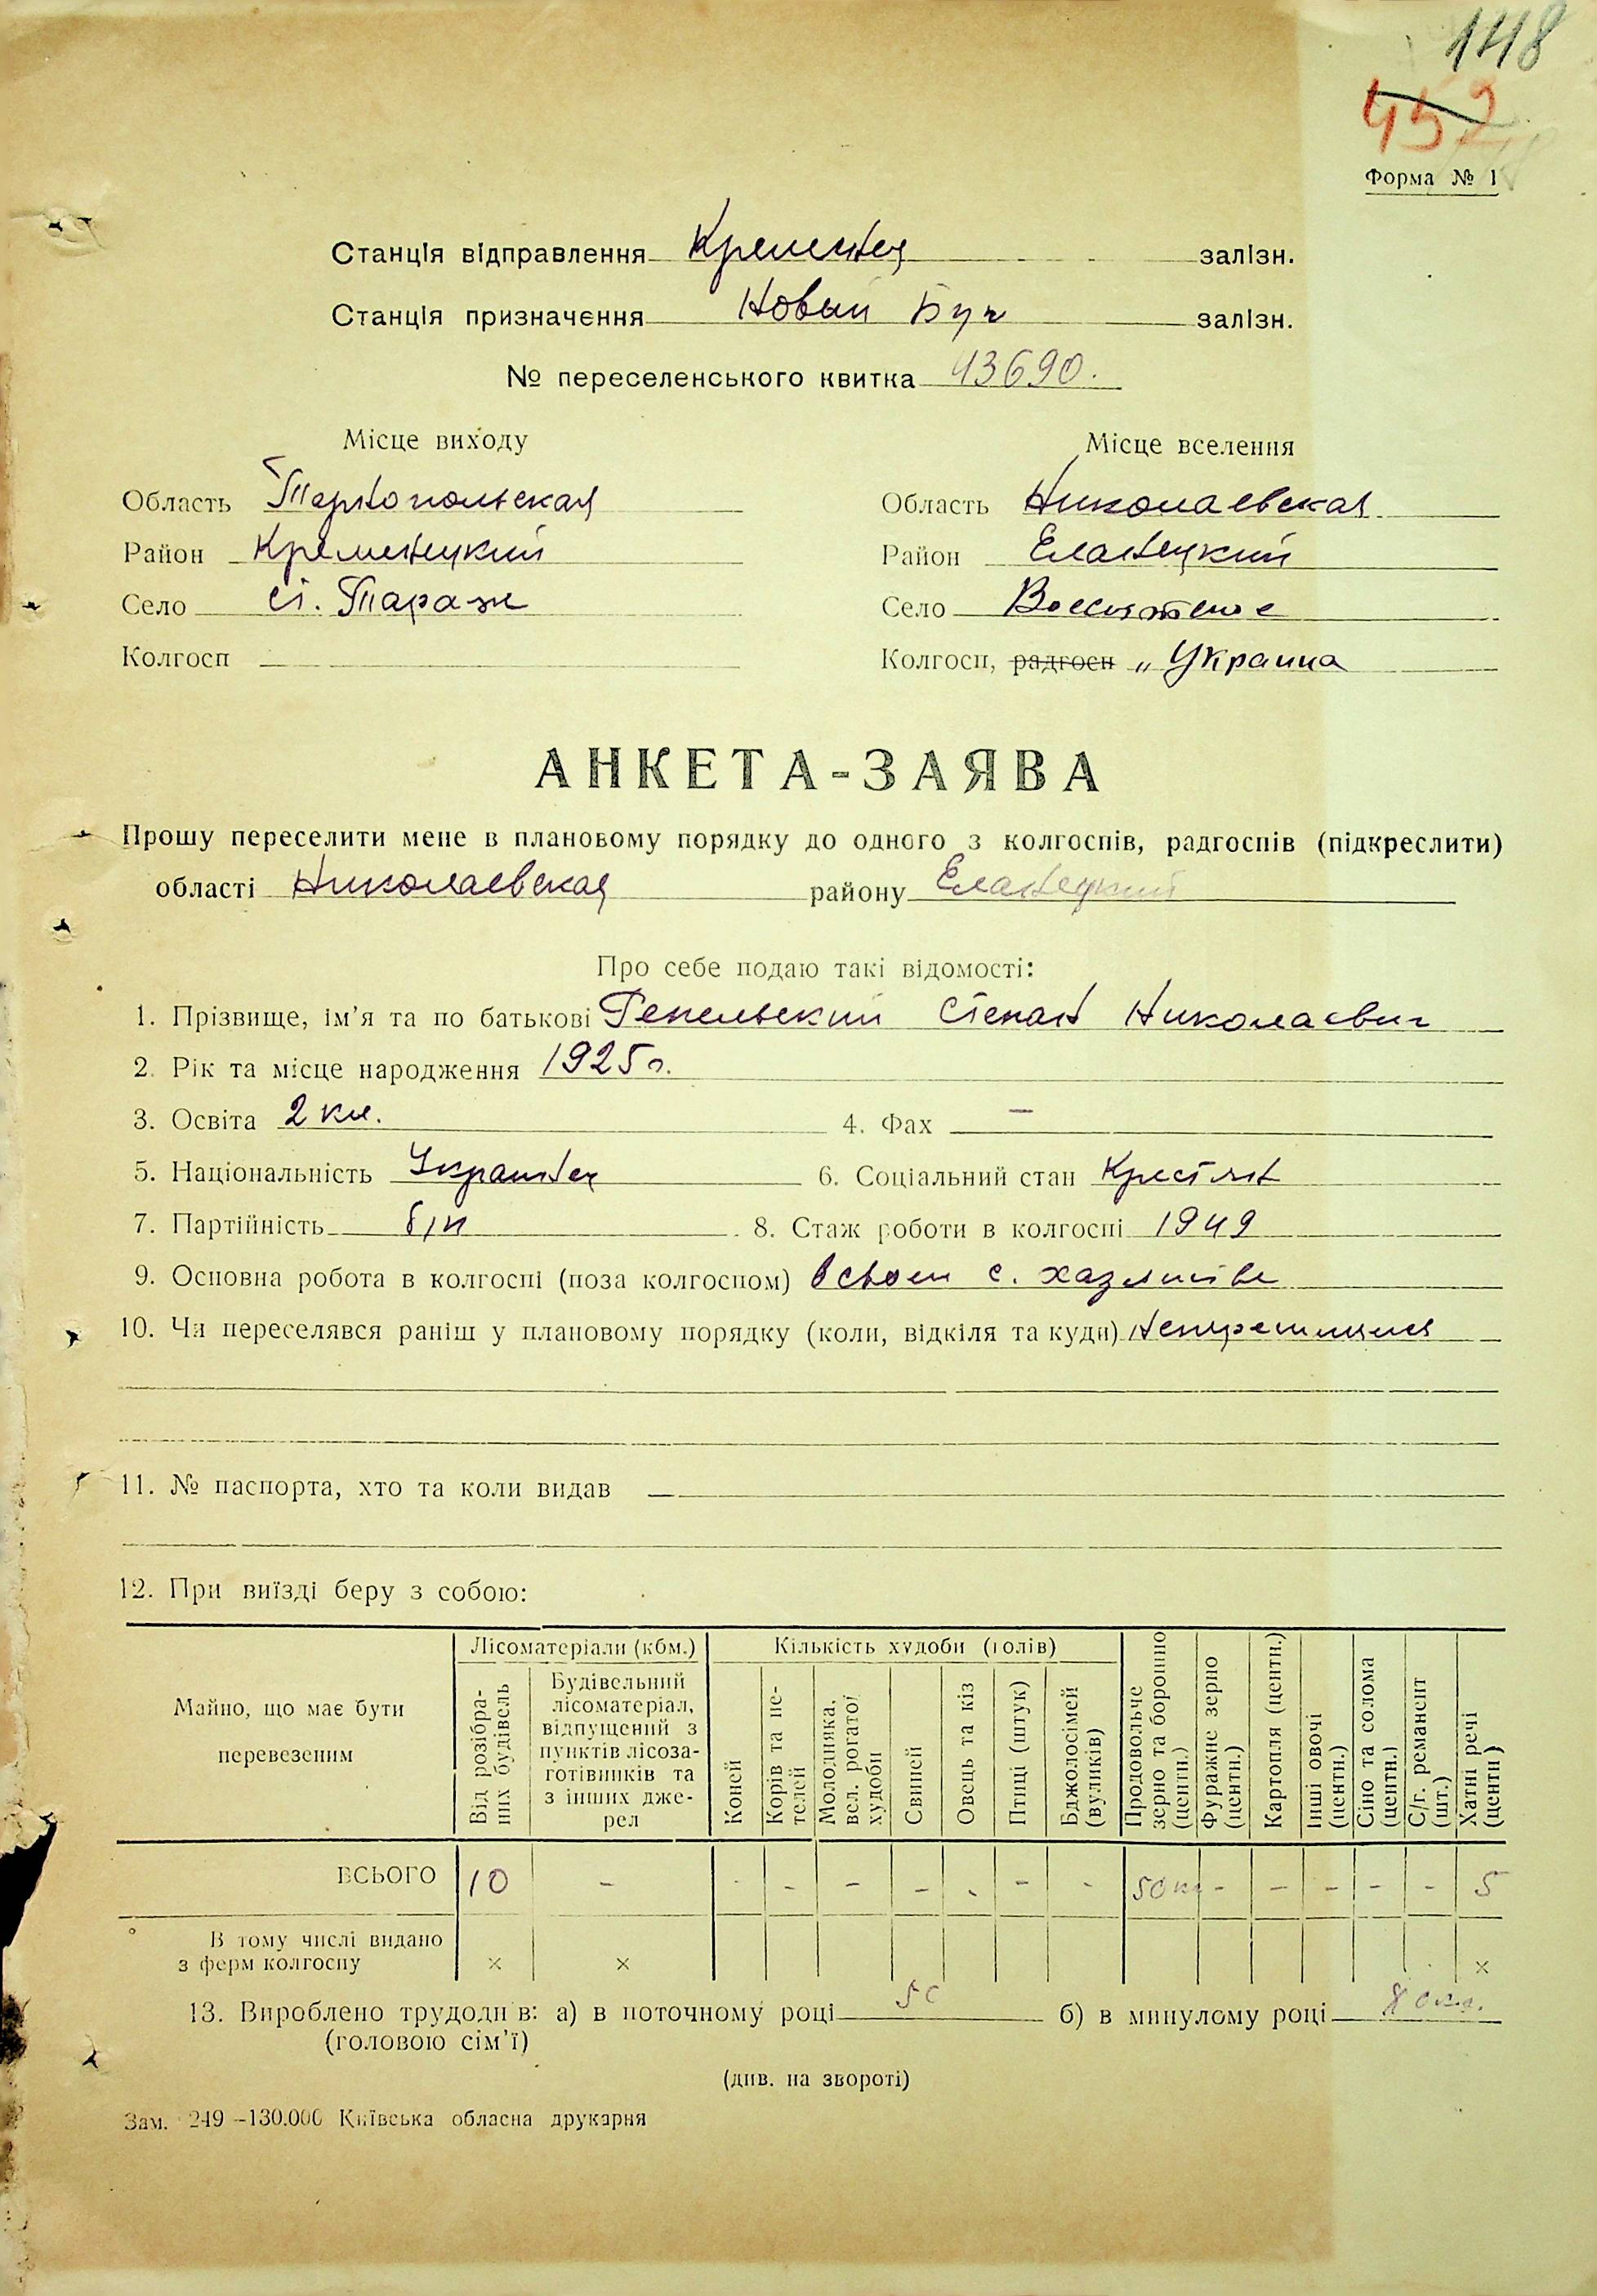 148
452
Форма № 1
Станція відправлення Кременец залізн.
Станція призначення Новый Буг залізн.
№ переселенського квитка 43690.
Місце виходу Місце вселення
Область Тернопольская Область Николаевская
Район Кременецкий Район Еланецкий
Село ст. Тараж Село Воссиятское
Колгосп — Колгосп, радгосп „Украина
АНКЕТА-ЗАЯВА
Прошу переселити мене в плановому порядку до одного з колгоспів, радгоспів (підкреслити)
області Николаевская району Еланецкий
Про себе подаю такі відомості:
1. Прізвище, ім’я та по батькові Степан Николаевич
2. Рік та місце народження 1925 г.
3. Освіта 2 кл. 4. Фах —
5. Національність Украинец 6. Соціальний стан Крестян
7. Партійність б/п 8. Стаж роботи в колгоспі 1949
9. Основна робота в колгоспі (поза колгоспом) в своем с. хазяистве
10. Чи переселявся раніш у плановому порядку (коли, відкіля та куди)
11. № паспорта, хто та коли видав —
12. При виїзді беру з собою:
Майно, що має бути перевезеним
Лісоматеріали (кбм.)
Від розібраних будівель
Будівельний лісоматеріал, відпущений з пунктів лісозаготівників та з інших джерел
Кількість худоби (голів)
Коней
Корів та нетелей
Молодняка, вел. рогатої худоби
Свиней
Овець та кіз
Птиці (штук)
Бджолосімей (вуликів)
Продовольче зерно та борошно (центн.)
Фуражне зерно (центн.)
Картопля (центн.)
Інші овочі (центн.)
Сіно та солома (центн.)
С/г. реманент (шт.)
Хатні речі (центн)
ВСЬОГО 10 - - - - - - - - 50 кг - - - - - 5
В тому числі видано
з ферм колгоспу × × ×
13. Вироблено трудоднів: а) в поточному році 50 б) в минулому році
(головою сім’ї)
(див. на звороті)
Зам. 249 –130.000 Київська обласна друкарня